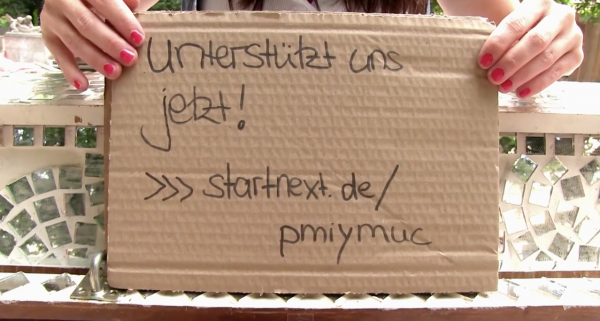 Unterstützt uns
jetzt!
>>> startnext.de/
pmiymuc